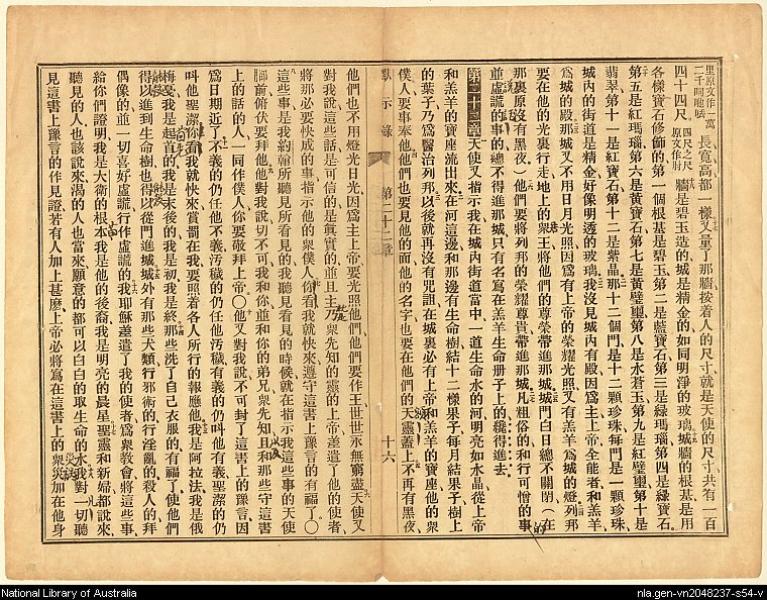 里原文作一萬
長寬高都一樣又量了那牆按着人的尺寸就是天使的尺寸共有一百
四十四尺四尺之尺原文作肘牆是碧玉造的城是精金的如同明淨的玻璃城牆的根基是用
各樣寶石修飾的第一個根基是碧玉第二是藍寶石第三是綠瑪瑙第四是綠寶石
第五是紅瑪瑙第六是黃寶石第七是黃璧璽第八是水蒼玉第九是紅璧璽第十是
翡翠第十一是紅寶石第十二是紫晶那十二個門是十二顆珍珠每門是一顆珍珠
城內的街道是精金好像明透的玻璃我沒見城內有殿因爲主上帝全能者和羔羊
爲城的殿那城又不用日月光照因爲有上帝的榮耀光照又有羔羊爲城的燈列邦
要在他的光裏行走地上的衆王將他們的尊榮帶進那城城門白日總不關閉（在
那裏原沒有黑夜）他們要將列邦的榮耀尊貴帶進那城凡粗俗的和行可憎的事
並虛謊的事的總不得進那城只有名寫在羔羊生命册子上的纔得進去
第二十二章天使又指示我在城內街道當中一道生命水的河明亮如水晶從上帝
和羔羊的寶座流出來在河這邊和那邊有生命樹結十二樣果子每月結果子樹上
的葉子乃爲醫治列邦以後就再沒有咒詛在城裏必有上帝和羔羊的寶座他的衆
僕人要事奉他他們也要見他的面他的名字也要在他們的天靈蓋上不再有黑夜
示錄 第二十二章 十六
他們也不用燈光日光因爲主上帝要光照他們他們要作王世世永無窮盡天使又
對我說這些話是可信的是眞實的並且主乃衆先知的靈的上帝差遣了他的使者
將那必要快成的事指示他的衆僕人你看我就快來遵守這書上豫言的有福了〇
這些事是我約翰所聽見所看見的我聽見看見的時候就在指示我這些事的天使
前俯伏要拜他他對我說切不可我和你並和你的弟兄衆先知且和那些守這書
上的話的人一同作僕人你要敬拜上帝〇他又對我說不可封了這書上的豫言因
爲日期近了不義的仍任他不義汚穢的仍任他汚穢有義的仍叫他有義聖潔的仍
叫他聖潔你看我就快來賞罰在我要照着各人所行的報應他我是阿拉法我是俄
梅憂我是起首的我是末後的我是初我是終那些洗了自己衣服的有福了使他們
得以進到生命樹也得以從門進城城外有那些犬類行邪術的行淫亂的殺人的拜
偶像的並一切喜好虛謊行作虛謊的我耶穌差遣了我的使者爲衆教會將這些事
給你們證明我是大衛的根本我是他的後裔我是明亮的晨星聖靈和新婦都說來
聽見的人也該說來渴的人也當來願意的都可以白白的取生命的水我對一切聽
見這書上豫言的作見證若有人加上甚麽上帝必將寫在這書上的衆災加在他身
National Library of Australia
nla.gen-vn2048237-s54-v